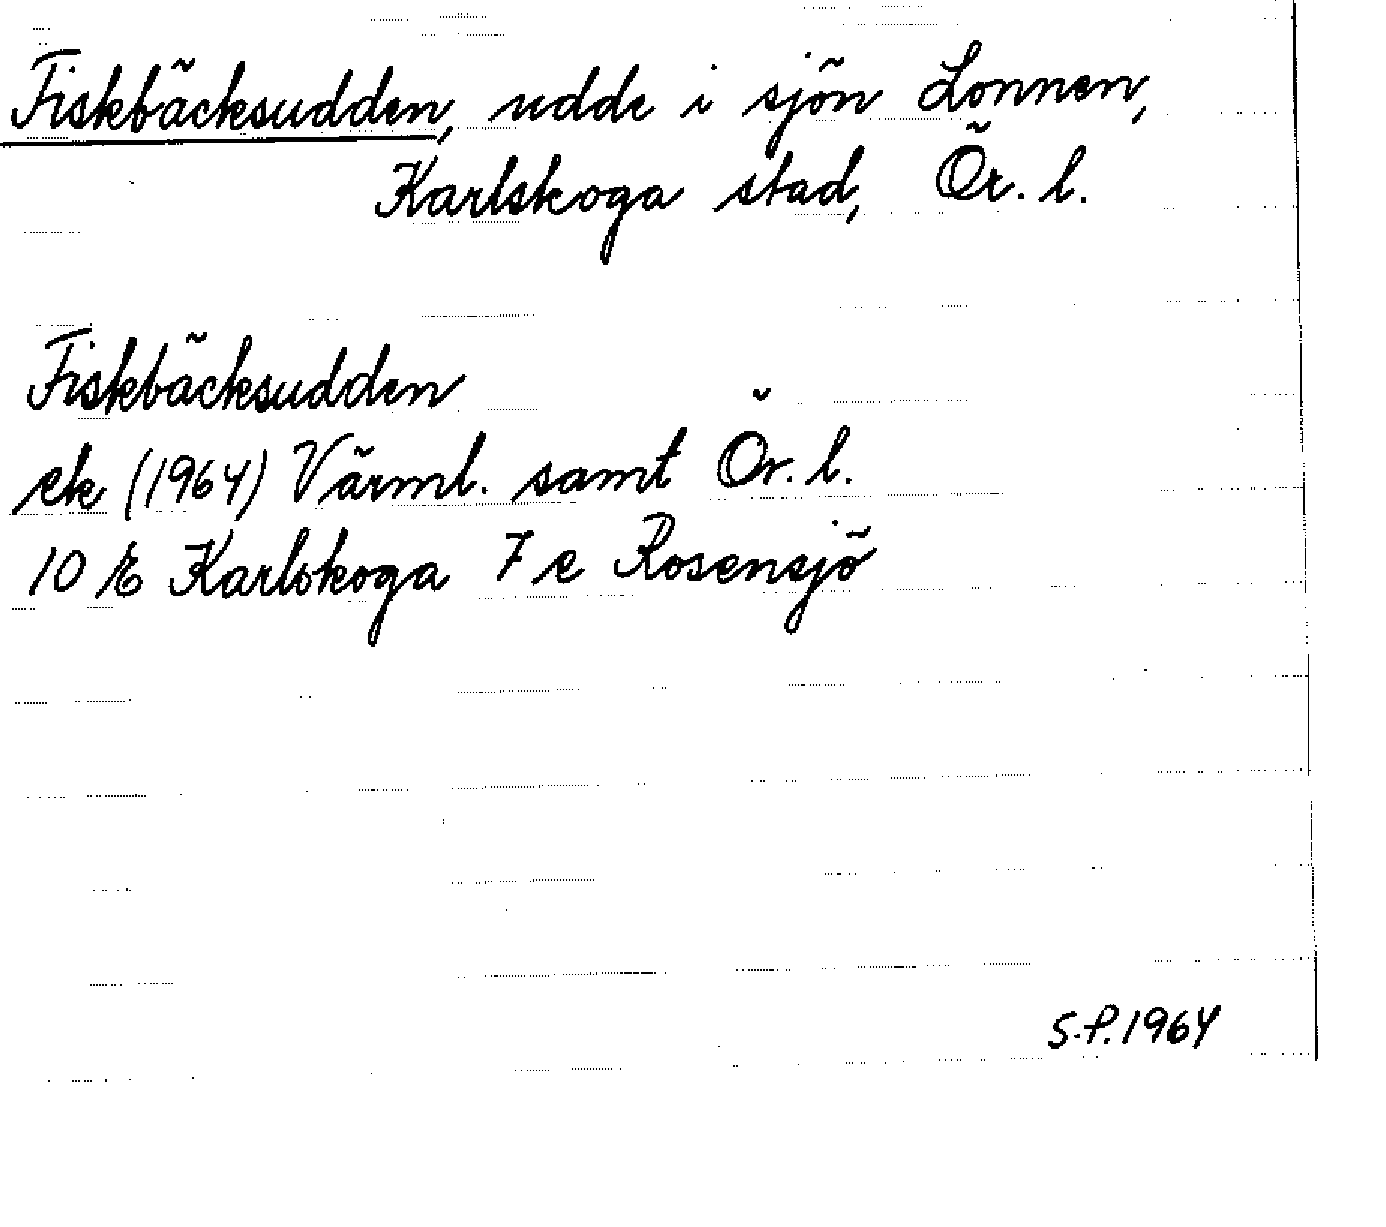 Fiskbäcksudden, udde i sjön Lonnen,
Karlskoga stad, Ör. l.
Fiskbäcksudden
ek (1964) Värml. samt Ör. l.
10 E Karlskoga 7 e Rosensjö
S.P. 1964